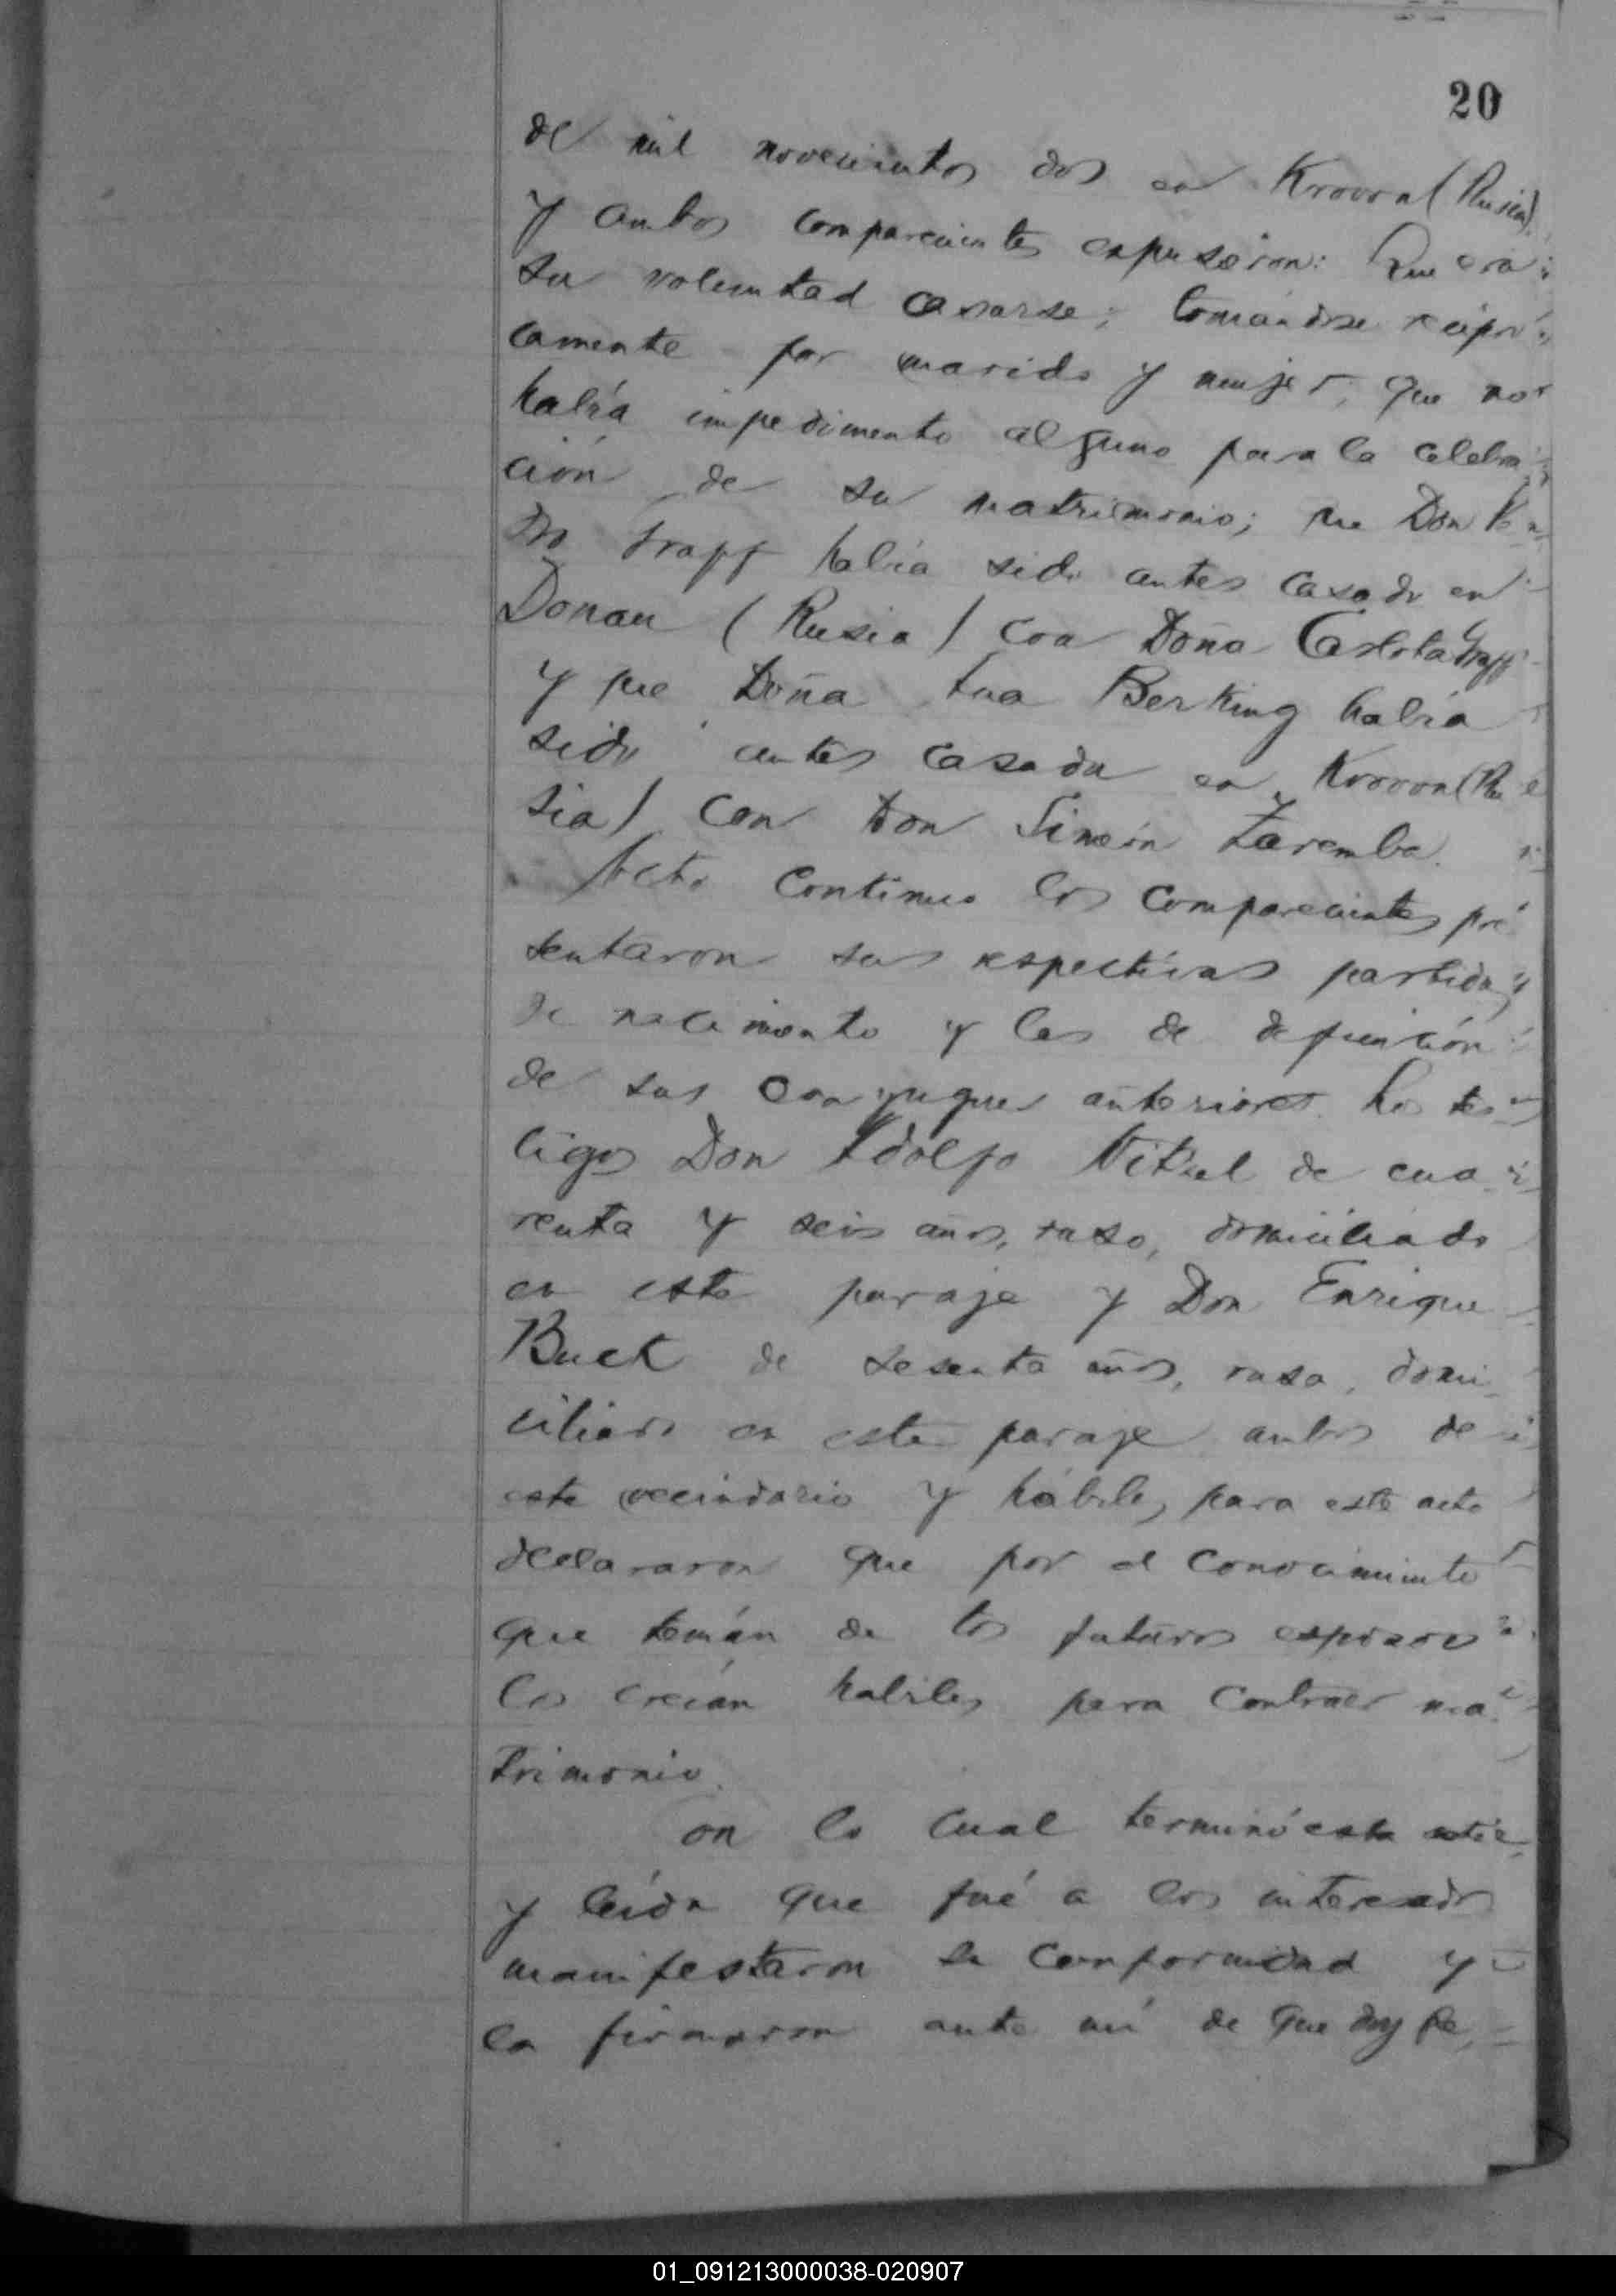 20
de mil novecientos dos en Krovon (Rusia)
y ambos comparecientes expusieron: Que era
su voluntad casarse, tomándose recipro
camente por marido y mujer, que no
había impedimento alguno para la celebra
ción de su matrimonio; que Don Pe
dro Trapp había sido antes casado en
Donau (Rusia) con Doña Carlota Trapp
y que Doña Ana Berking había
sido antes casada en Krovon (Ru
sia) con Don Simeón Zaremba.
Acto continuo los comparecientes pre
sentaron sus respectivas partidas
de nacimiento y las de defunción
de sus conyugues anteriores. Los tes
tigos Don Adolfo de cua
renta y seis años, ruso, domiciliado
en este paraje y Don Enrique
Buck de sesenta años, ruso, domi
ciliado en este paraje ambos de
este vecindario y hábiles para este acto
declararon que por el conocimiento
que tenían de los futuros esposos
los creían habiles para contraer ma
trimonio.
on lo cual terminó esta
y leída que fué a los interesados
manifestaron su conformidad y
la firmaron ante mí de que doy fe,
01_091213000038-020907